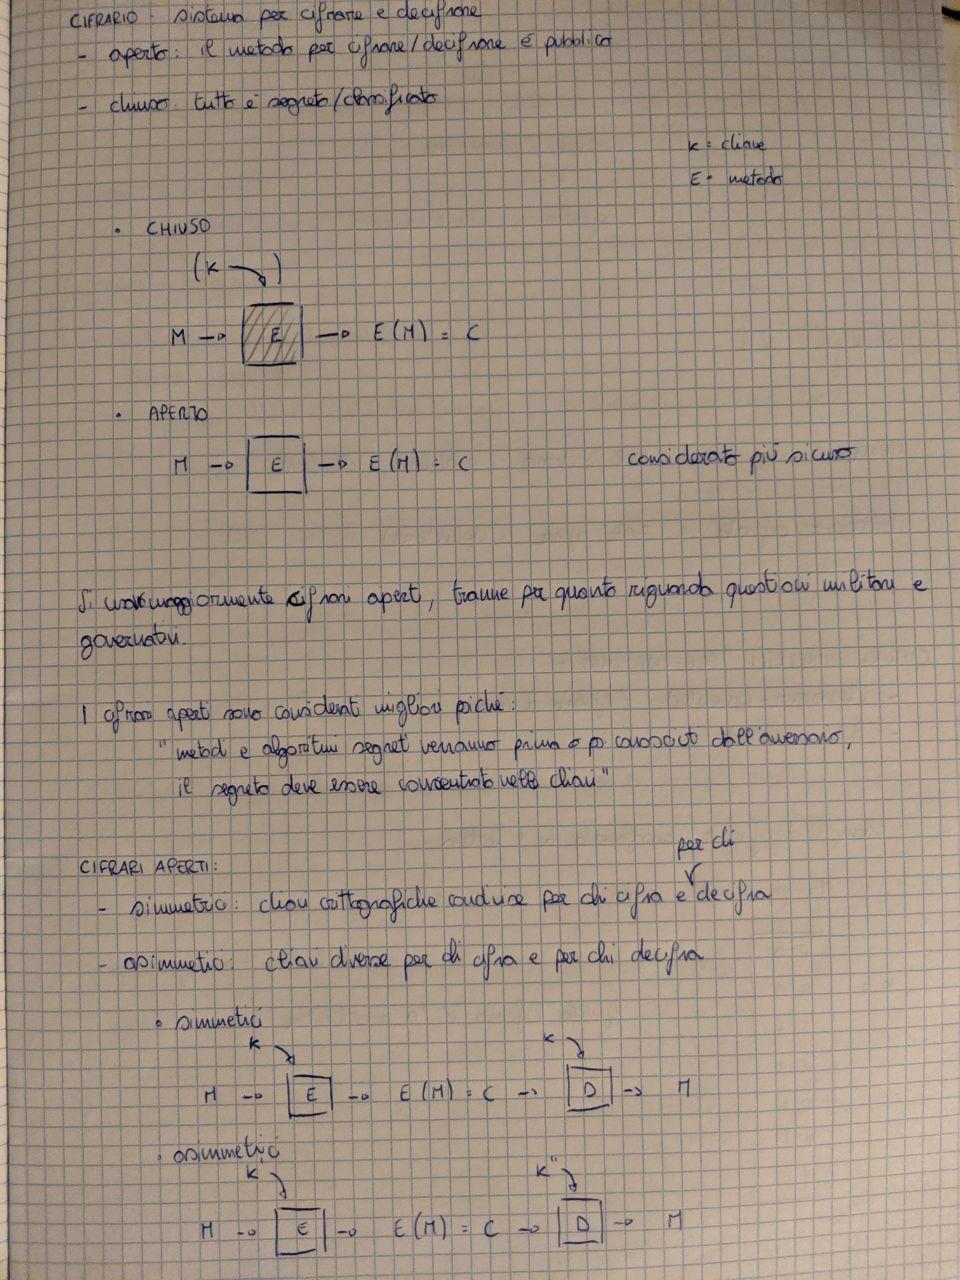 CIFRARIO: sistema per cifrare e decifrare
- aperto: il metodo per cifrare/decifrare è pubblico
- chiuso: tutto è segreto/classificato
K = chiave
E = metodo
• CHIUSO
(K )
M → E → E(M) = C
• APERTO
M → E → E(M) = C considerato più sicuro
Si usano maggiormente cifrari aperti, tranne per quanto riguarda questioni militari e
governativi.
I cifrari aperti sono considerati migliori poiché:
" metodi e algoritmi segreti verranno prima o poi conosciuti dall'avversario,
il segreto deve essere concentrato nelle chiavi"
per chi
CIFRARI APERTI:
- simmetrici: chiavi crittografiche condivise per chi cifra e decifra
- asimmetici: chiavi diverse per chi cifra e per chi decifra
• simmetici
K K
M → E → E(M) = C → D → M
• asimmetici
K' K"
M → E → E(M) = C → D → M